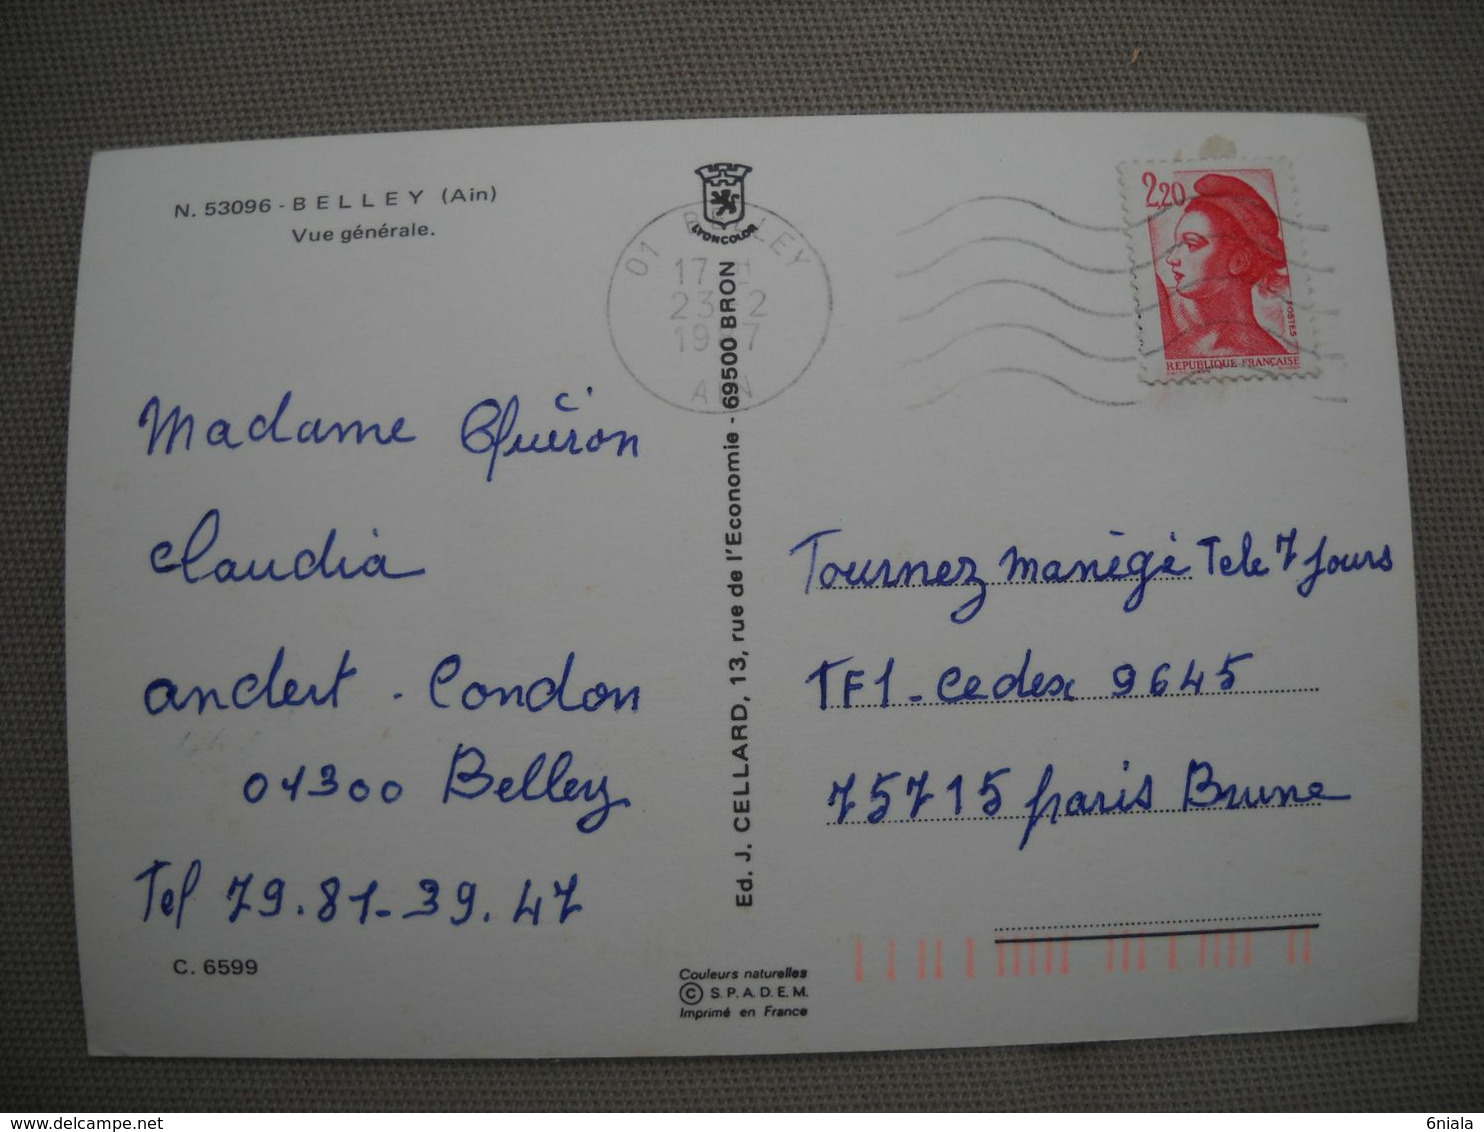 N. 53096 - BELLEY (Ain)
Vue générale.
LYONCOLOR
01 BELLEY
23 2
AIN
2,20
POSTES
REPUBLIQUE FRANÇAISE
Madame
Claudia
andert - Condon
01300 Belley
Tel 79.81-39.47
C. 6599
Ed. J. CELLARD, 13, rue de l'Economie - 69500 BRON
Couleurs naturelles
© S.P.A.D.E.M.
Imprimé en France
Tournez manègé Tele 7 jours
TF1 - Cedex 9645
75715 paris Brune
6niala